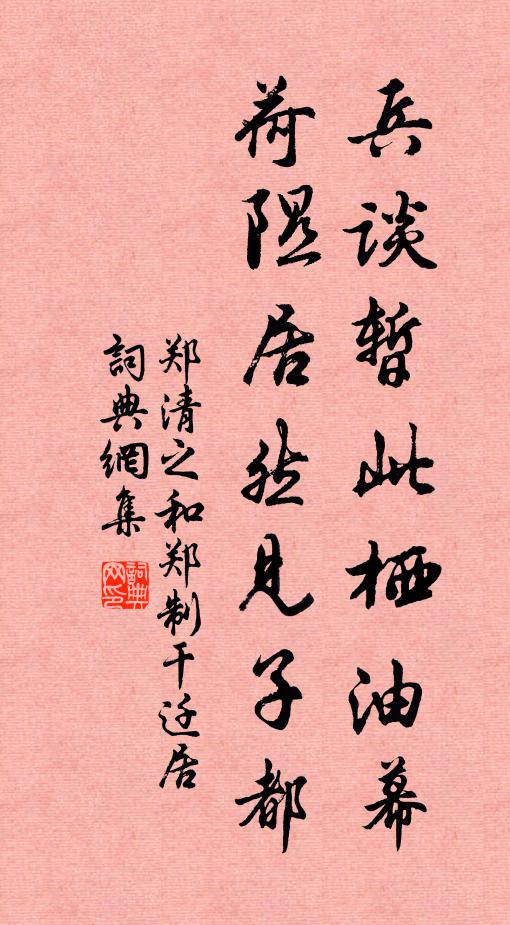 兵谈暂此栖油幕
荷隰居然见子都
郑清之和郑制干迁居
詞典網集
詞典
网印